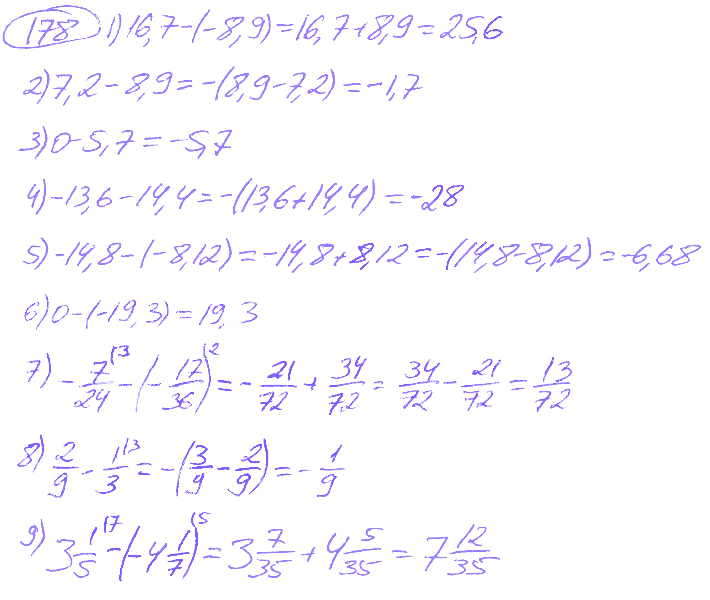 178 1) 16,7-(-8,9)=16,7+8,9=25,6
2) 7,2-8,9=-(8,9-7,2)=-1,7
3) 0-5,7=-5,7
4) -13,6-14,4=-(13,6+14,4)=-28
5) -14,8-(-8,12)=-14,8+8,12=-(14,8-8,12)=-6,68
6) 0-(-19,3)=19,3
7) -7/24^(3-(-17/36^(2)=-21/72+34/72=34/72-21/72=13/72
8) 2/9-1/3^(3=-(3/9-2/9)=-1/9
9) 3 1/5^(7-(-4 1/7^(5)=3 7/35+4 5/35=7 12/35